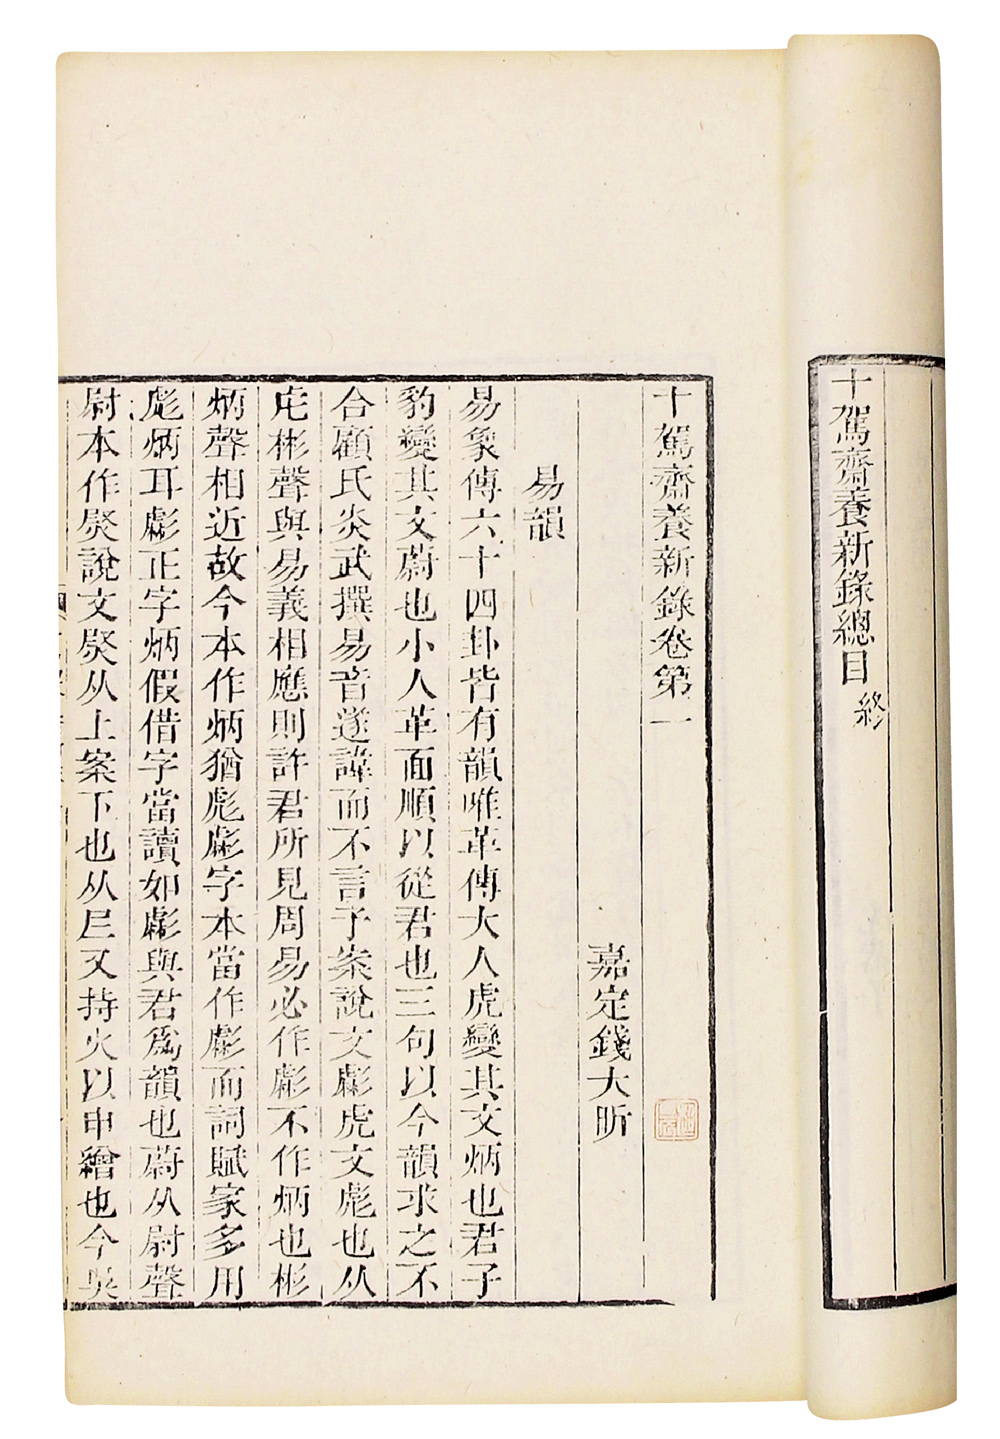 十駕齋養新錄總目終
十駕齋養新錄卷第一
嘉定錢大昕
易韻
易象傳六十四卦皆有韻唯革傳大人虎變其文炳也君子
豹變其文蔚也小人革面順以從君也三句以今韻求之不
合顧氏炎武撰易音遂諱而不言予案說文彪虎文彪也从
虍彬聲與易義相應則許君所見周易必作彪不作炳也彬
炳聲相近故今本作炳猶彪彪字本當作彪而詞賦家多用
彪炳耳彪正字炳假借字當讀如彪與君爲韻也蔚从尉聲
尉本作㷉說文㷉从上案下也从𡰥又持火以申繒也今吳